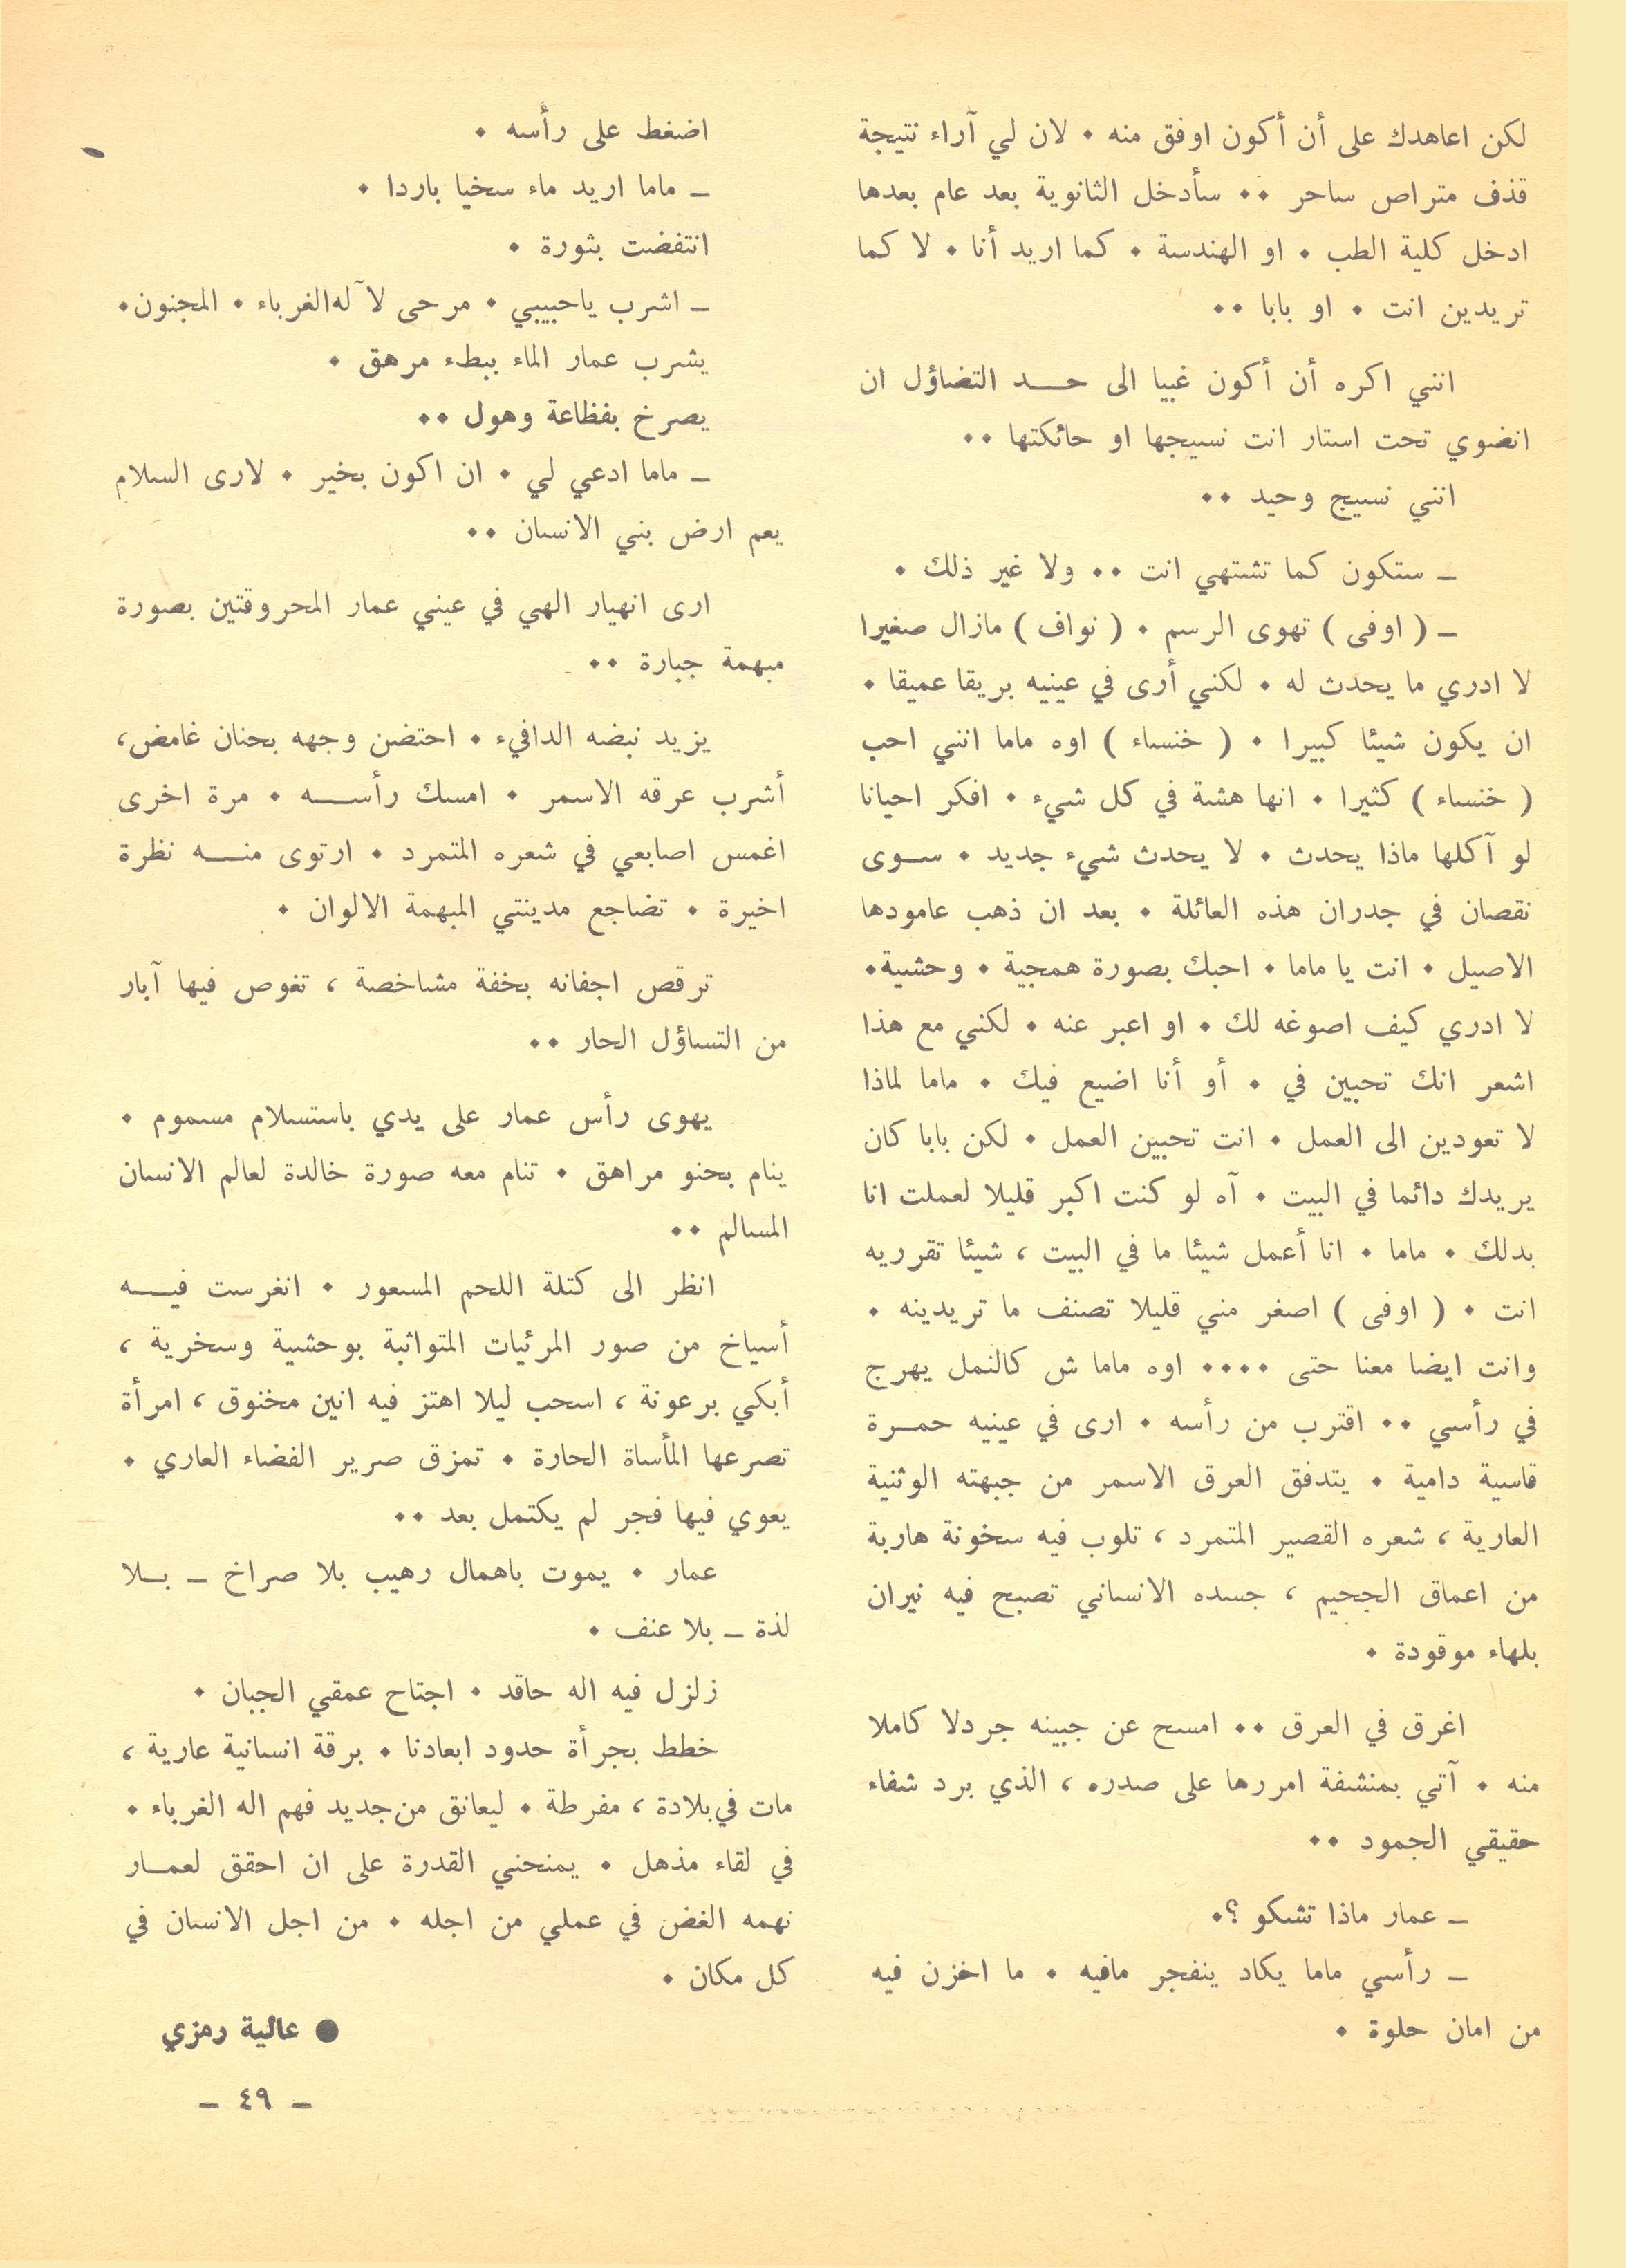 لكن اعاهدك على أن أكون اوفق منه . لان لي آراء نتيجة
قذف متراص ساحر .. سأدخل الثانوية بعد عام بعدها
ادخل كلية الطب . او الهندسة . كما اريد أنا . لا كما
تريدين انت . او بابا ..
انني اكره أن أكون غبيا الى حد التضاؤل ان
انضوي تحت استار انت نسيجها او حائكتها ..
انني نسيج وحيد ..
ـ ستكون كما تشتهي انت .. ولا غير ذلك .
ـ ( اوفى ) تهوى الرسم . ( نواف ) مازال صغيرا
لا ادري ما يحدث له . لكني أرى في عينيه بريقا عميقا .
ان يكون شيئا كبيرا . ( خنساء ) اوه ماما انني احب
( خنساء ) كثيرا . انها هشة في كل شيء . افكر احيانا
لو آكلها ماذا يحدث . لا يحدث شيء جديد . سوى
نقصان في جدران هذه العائلة . بعد ان ذهب عامودها
الاصيل . انت يا ماما . احبك بصورة همجية . وحشية .
لا ادري كيف اصوغه لك . او اعبر عنه . لكني مع هذا
اشعر انك تحبين في . أو أنا اضيع فيك . ماما لماذا
لا تعودين الى العمل . انت تحبين العمل . لكن بابا كان
يريدك دائما في البيت . آه لو كنت اكبر قليلا لعملت انا
بدلك . ماما . انا أعمل شيئا ما في البيت ، شيئا تقرريه
انت . ( اوفى ) اصغر مني قليلا تصنف ما تريدينه .
وانت ايضا معنا حتى .... اوه ماما ش كالنمل يهرج
في رأسي .. اقترب من رأسه . ارى في عينيه حمرة
قاسية دامية . يتدفق العرق الاسمر من جبهته الوثنية
العارية ، شعره القصير المتمرد ، تلوب فيه سخونة هاربة
من اعماق الجحيم ، جسده الانساني تصبح فيه نيران
بلهاء موقودة .
اغرق في العرق .. امسح عن جبينه جردلا كاملا
منه . آتي بمنشفة امررها على صدره ، الذي برد شفاء
حقيقي الجمود ..
ـ عمار ماذا تشكو ؟.
ـ رأسي ماما يكاد ينفجر مافيه . ما اخزن فيه
من امان حلوة .
اضغط على رأسه .
ـ ماما اريد ماء سخيا باردا .
انتفضت بثورة .
ـ اشرب ياحبيبي . مرحى لآله الغرباء . المجنون .
يشرب عمار الماء ببطء مرهق .
يصرخ بفظاعة وهول ..
ـ ماما ادعي لي . ان اكون بخير . لارى السلام
يعم ارض بني الانسان ..
ارى انهيار الهي في عيني عمار المحروقتين بصورة
مبهمة جبارة ..
يزيد نبضه الدافيء . احتضن وجهه بحنان غامض ،
أشرب عرقه الاسمر . امسك رأسه . مرة اخرى
اغمس اصابعي في شعره المتمرد . ارتوى منه نظرة
اخيرة . تضاجع مدينتي المبهمة الالوان .
ترقص اجفانه بخفة مشاخصة ، تغوص فيها آبار
من التساؤل الحار ..
يهوى رأس عمار على يدي باستسلام مسموم .
ينام بحنو مراهق . تنام معه صورة خالدة لعالم الانسان
المسالم ..
انظر الى كتلة اللحم المسعور . انغرست فيه
أسياخ من صور المرئيات المتواثبة بوحشية وسخرية ،
أبكي برعونة ، اسحب ليلا اهتز فيه انين مخنوق ، امرأة
تصرعها المأساة الحارة . تمزق صرير الفضاء العاري .
يعوي فيها فجر لم يكتمل بعد ..
عمار . يموت باهمال رهيب بلا صراخ ـ بلا
لذة ـ بلا عنف .
زلزل فيه اله حاقد . اجتاح عمقي الجبان .
خطط بجرأة حدود ابعادنا . برقة انسانية عارية ،
مات في بلادة ، مفرطة . ليعانق من جديد فهم اله الغرباء .
في لقاء مذهل . يمنحني القدرة على ان احقق لعمار
نهمه الغض في عملي من اجله . من اجل الانسان في
كل مكان .
● عالية رمزي
ـ ٤٩ ـ